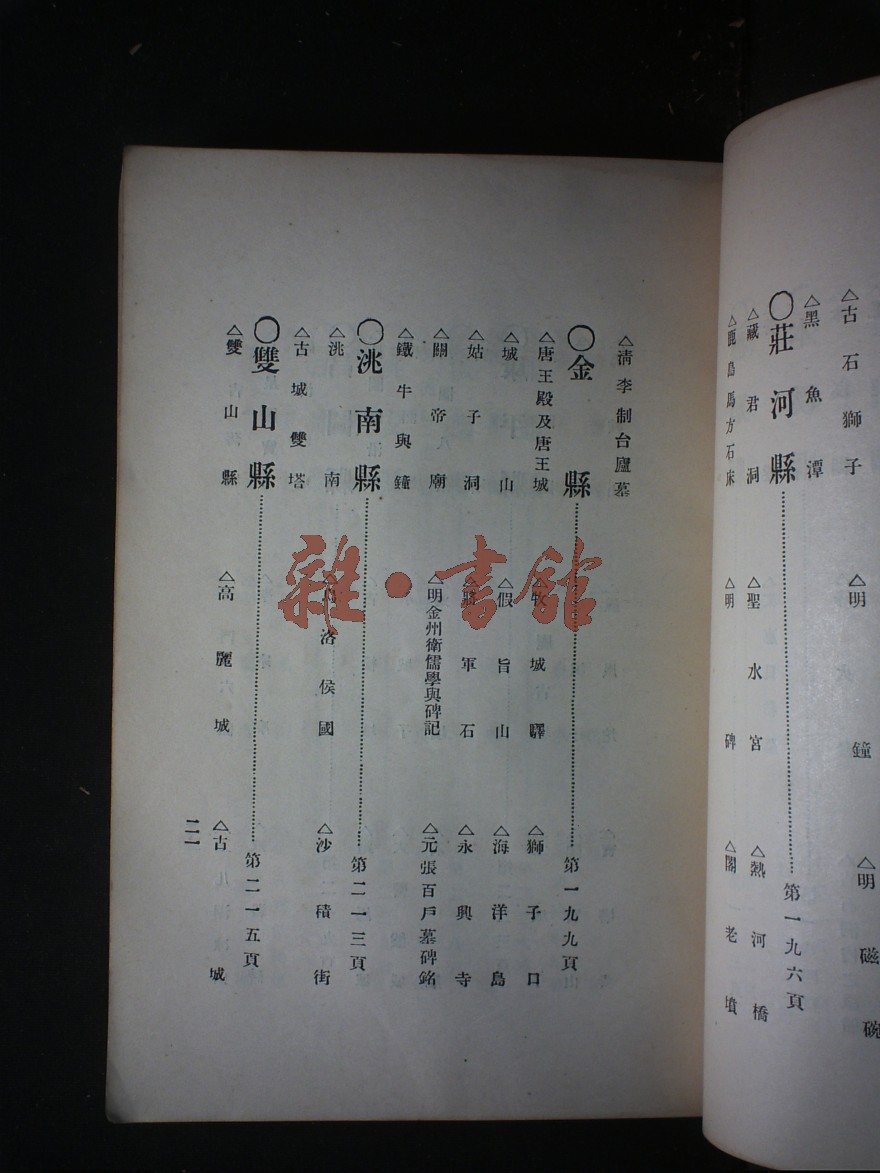 △古石獅子 △明鐘 △明磁碗
△黑魚潭
〇莊河縣………第一九六頁
△藏君洞 △聖水宮 △熱河橋
△鹿島馬方石床 △明碑 △閣老墳
△清李制台廬墓
〇金縣………第一九九頁
△唐王殿及唐王城 △牧城驛 △獅子口
△城山 △假旨山 △海洋島
△姑子洞 △將軍石 △永興寺
△關帝廟 △明金州衛儒學與碑記 △元張百戶墓碑銘
△鐵牛與鐘
〇洮南縣………第二一三頁
△洮南 洛侯國 △沙積街
△古城雙塔
〇雙山縣………第二一五頁
△雙山縣 △高麗城 △古城
二一
雜·書館